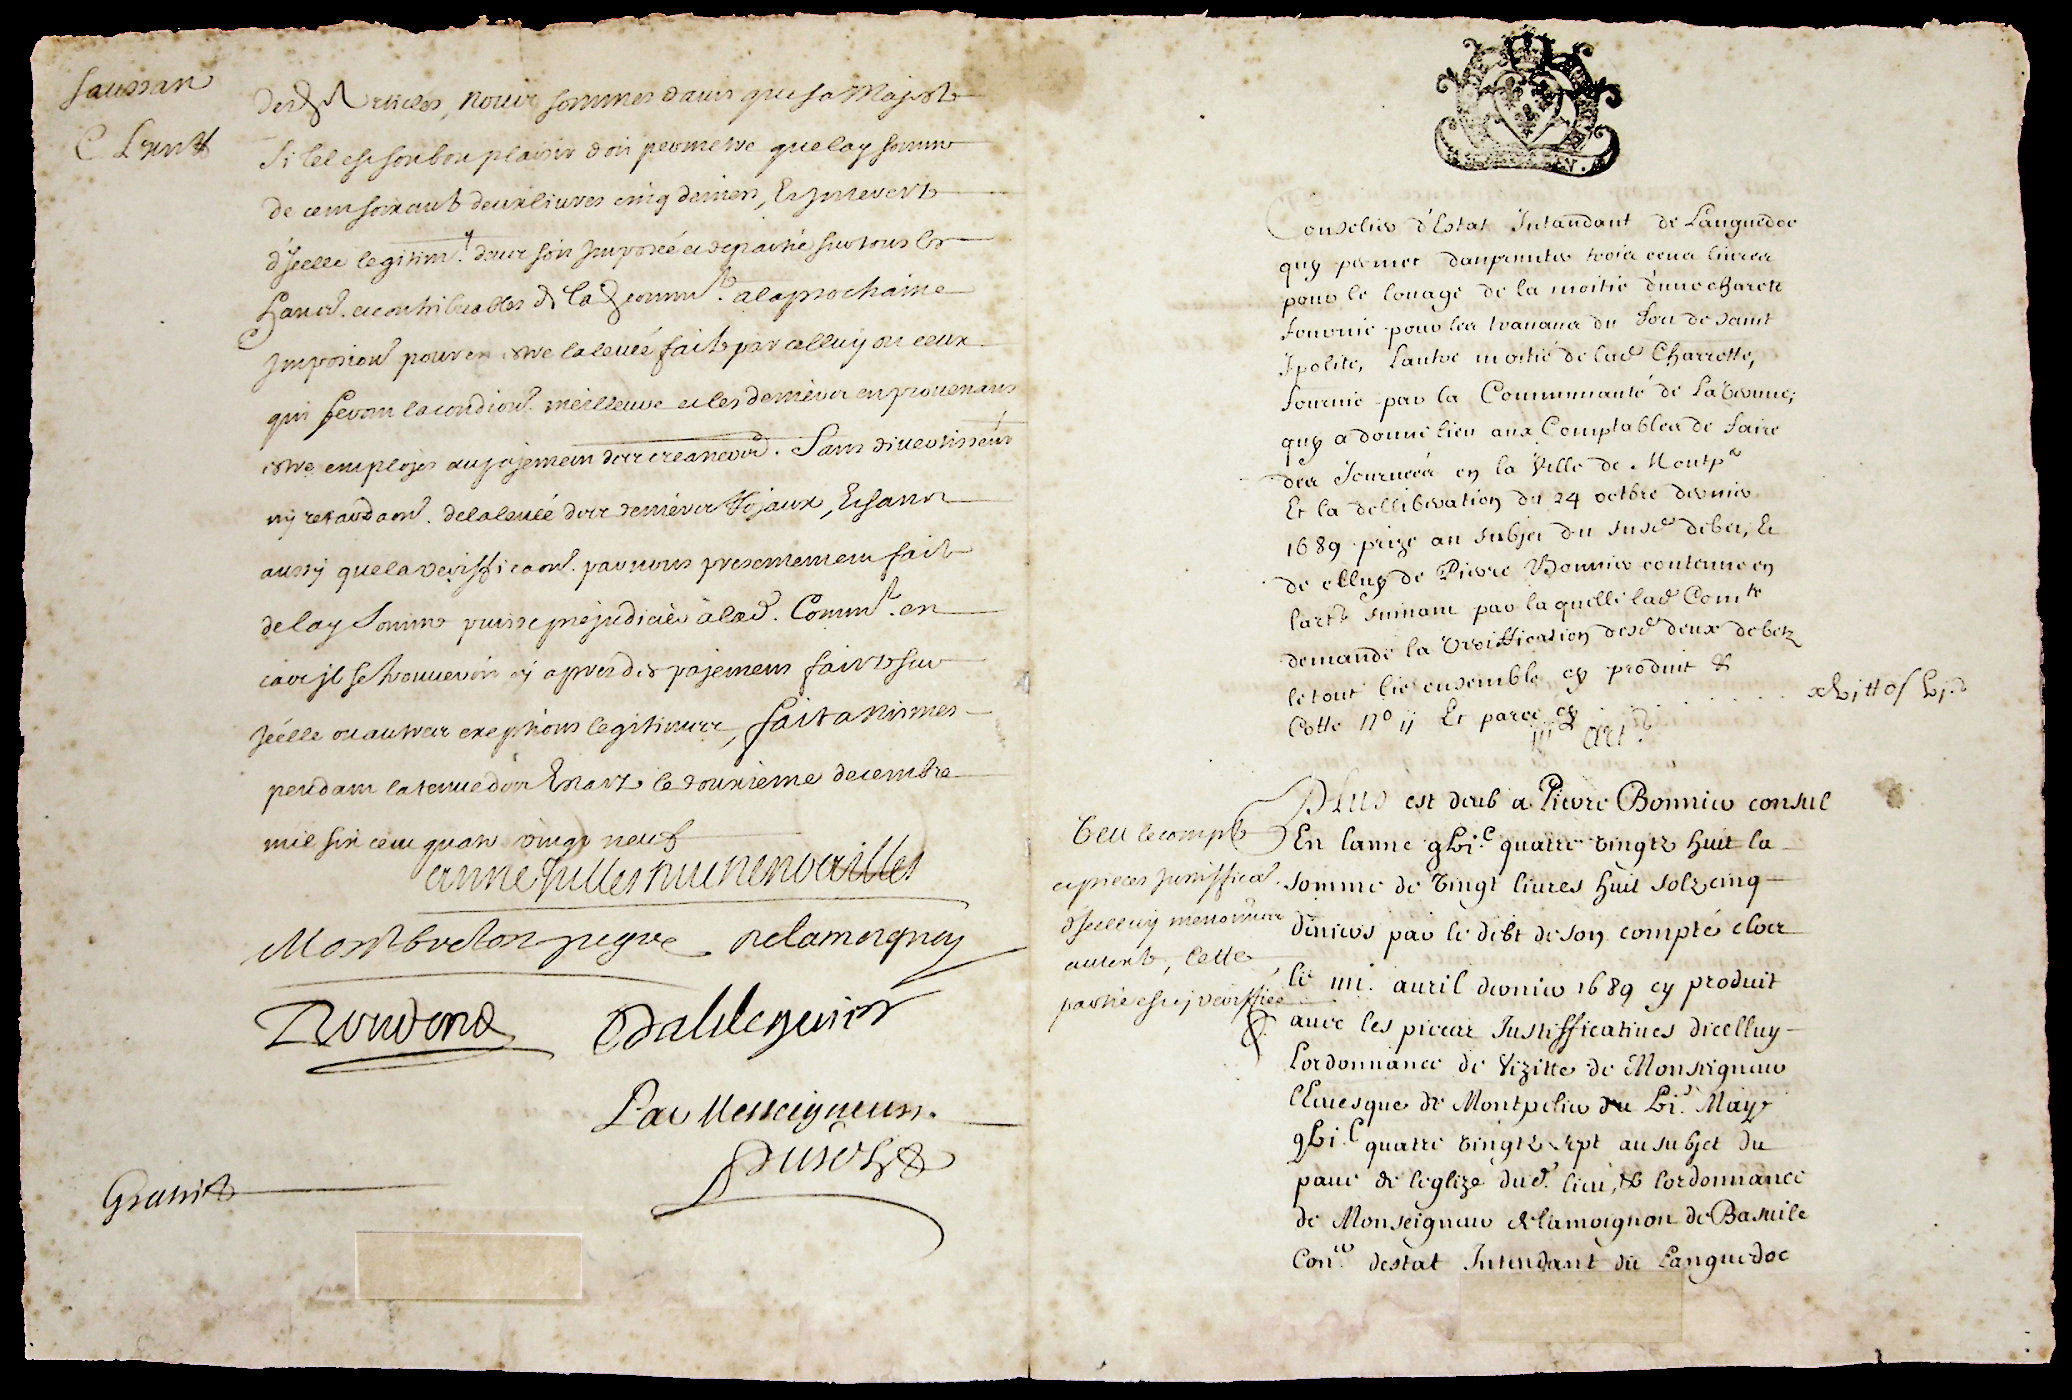 Saussan
des Articles, Nous sommes davis que sa Majesté
si tel est son bon plaisir doit permetre que lad somme
de cent soixante deux livres cinq deniers, Et Interest
d'Jcelle legitim. deue soit Imposée et departie sur tous les
habit. et contribuables de lad commté. a la prochaine
Imposion pour en estre la levée faite par celluy ou ceux
qui feront la condion. meilleure et les deniers en provenans
estre employes au payement des creanciers. Sans divertissemt
ny retardaon. de la levée des deniers Royaux, Et sans
aussy que la veriffication. par nous presentement faite
de lad Somme puisse prejudicier à lad. Commté. en
cas jl se trouveroit cy apres des payemens faits sur
Jcelle ou autres exeptions legitimes, fait a Nismes
pendant la tenue des Estatz le douxieme decembre
mil six cens quatre vingt neuf
anne Jules duc de noailles
Montbreton Jugre delamoignon
Par Messeigneurs.
Gratis
Conselier d'Estat Intandant de Languedoc
quy permet danprunter trois cens livres
pour le louage de la moitié d'une charete
fournie pour les travaux du Fort de saint
Ipolite, Lautre moitié de lad Charrette,
fournie par la Communauté de Laverune;
quy a donné lieu aux Comptables de faire
des Journées en la Ville de Montpr
Et la delliberation du 24 octbre dernier
1689 prize au subjet du susd debet, Et
de celluy de Pierre Bonnier contenue en
lartle suivant par laquelle lad Comte
demande la veriffication desd deux debetz
le tout lié ensemble cy produit &
Cotte No ij Et parce cy
iij Art.
Veu le compte
et pieces Justiffica.
d'Jcelluy mentionnées
autexte, Cette
partie est cy veriffiée
Plus est deub a Pierre Bonnier consul
En lanné gbi.c quatre vingtz huit la
somme de Vingt livres huit solz cinq
deniers par le debt de son compté clos
le iiii. auril dernier 1689 cy produit
auec les pieces Justifficatiues dicelluy
Lordonnance de Vizitte de Monseigneur
lEuesque de Montpelier du bi. May
gbi.c quatre vingtz sept au subjet du
paué de leglize dud. lieu, & lordonnance
de Monseigneur delamoignon de Basuile
Coner. destat Intendant du Languedoc